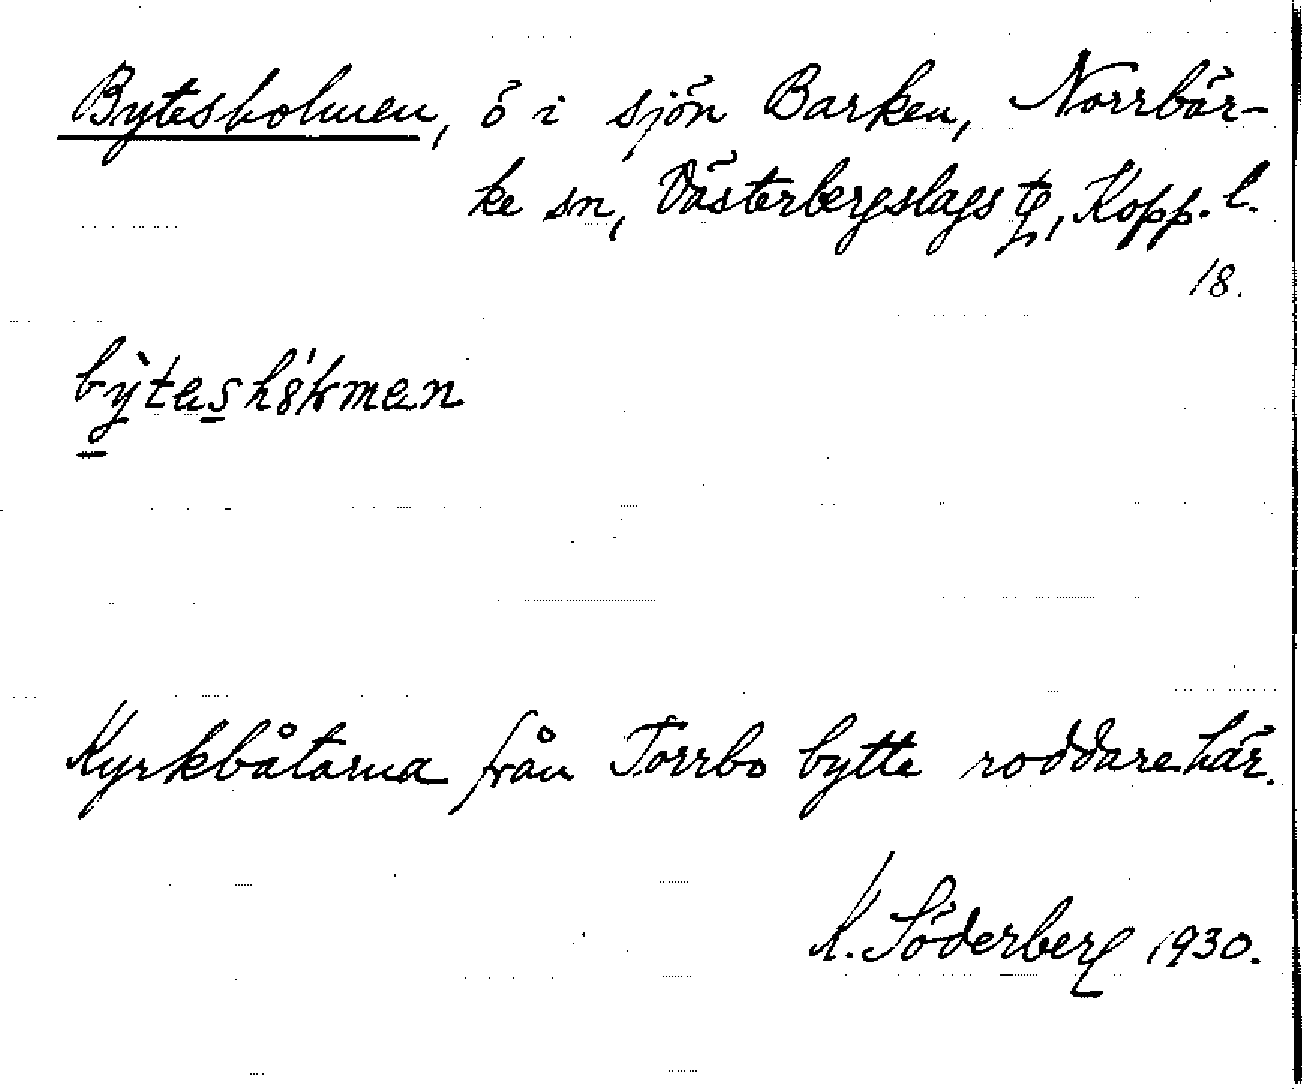 Bytesholmen, ö i sjön Barken, Norrbär-
ke sn, Västerbergslags tg, Kopp. l.
18.
Kyrkbåtarna från Torrbo bytte roddare här.
K. Söderberg 1930.